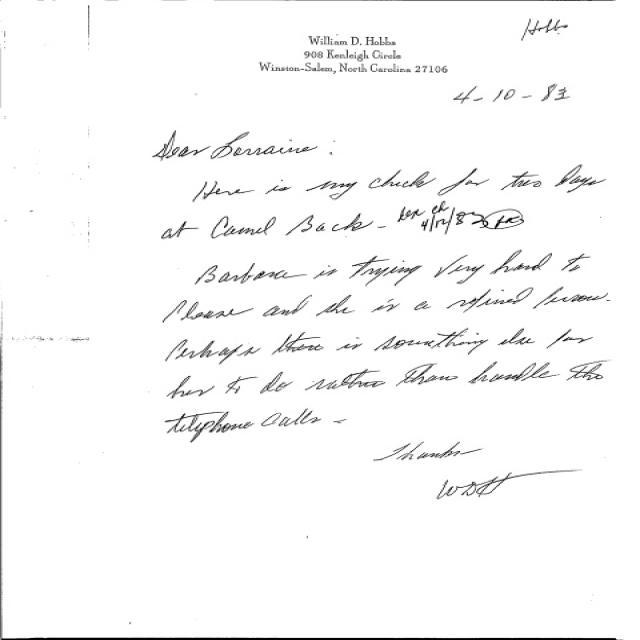 Hobbs
William D. Hobbs
908 Kenleigh Circle
Winston-Salem, North Carolina 27106
4-10-83
Dear Lorraine:
Here is my check for two days
at Camel Back -
4/12/83
Barbara is trying very hard to
please and she is a refined person.
Perhaps there is something else for
her to do rather than handle the
telephone calls -
Thanks
WDH